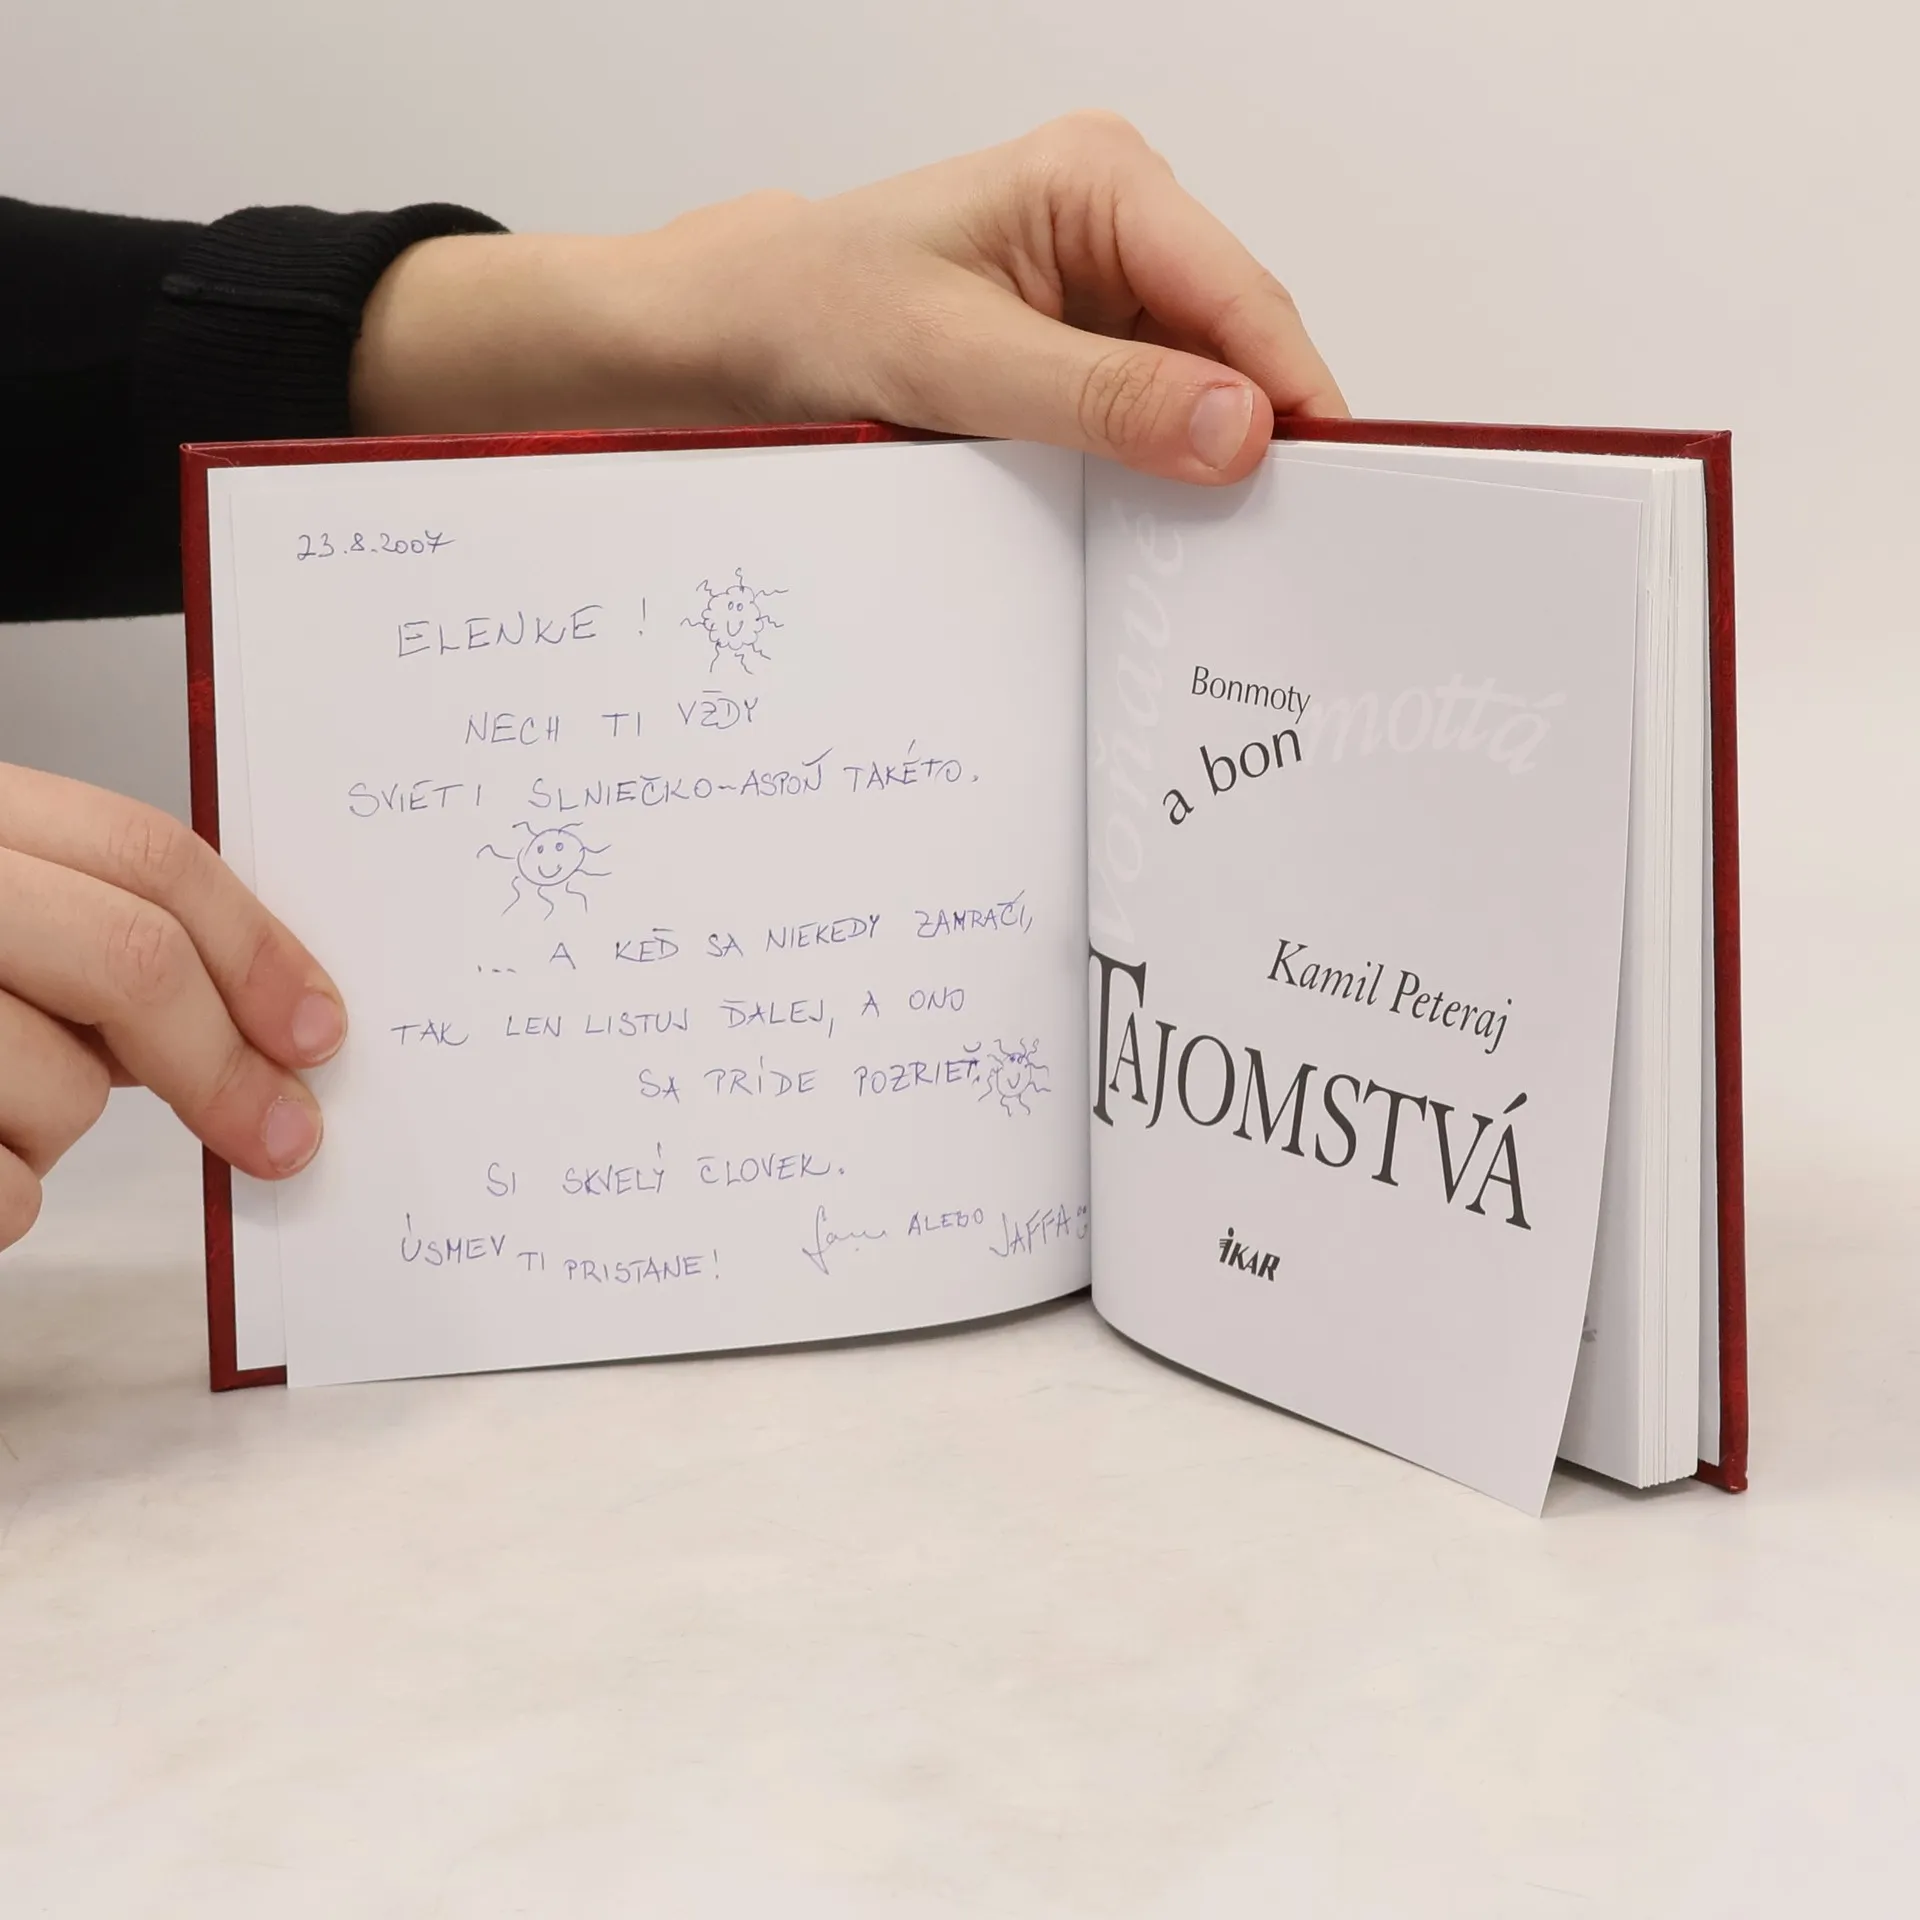 23.8.2007
ELENKE!
NECH TI VŽDY
SVIETI SLNIEČKO-ASPOŇ TAKÉTO.
... A KEĎ SA NIEKEDY ZAMRAČÍ,
TAK LEN LISTUJ ĎALEJ, A ONO
SA PRÍDE POZRIEŤ.
SI SKVELÝ ČLOVEK.
ÚSMEV TI PRISTANE!
ALEBO JAFFA
voňavé
Bonmoty
mottá
a bon
Kamil Peteraj
TAJOMSTVÁ
IKAR